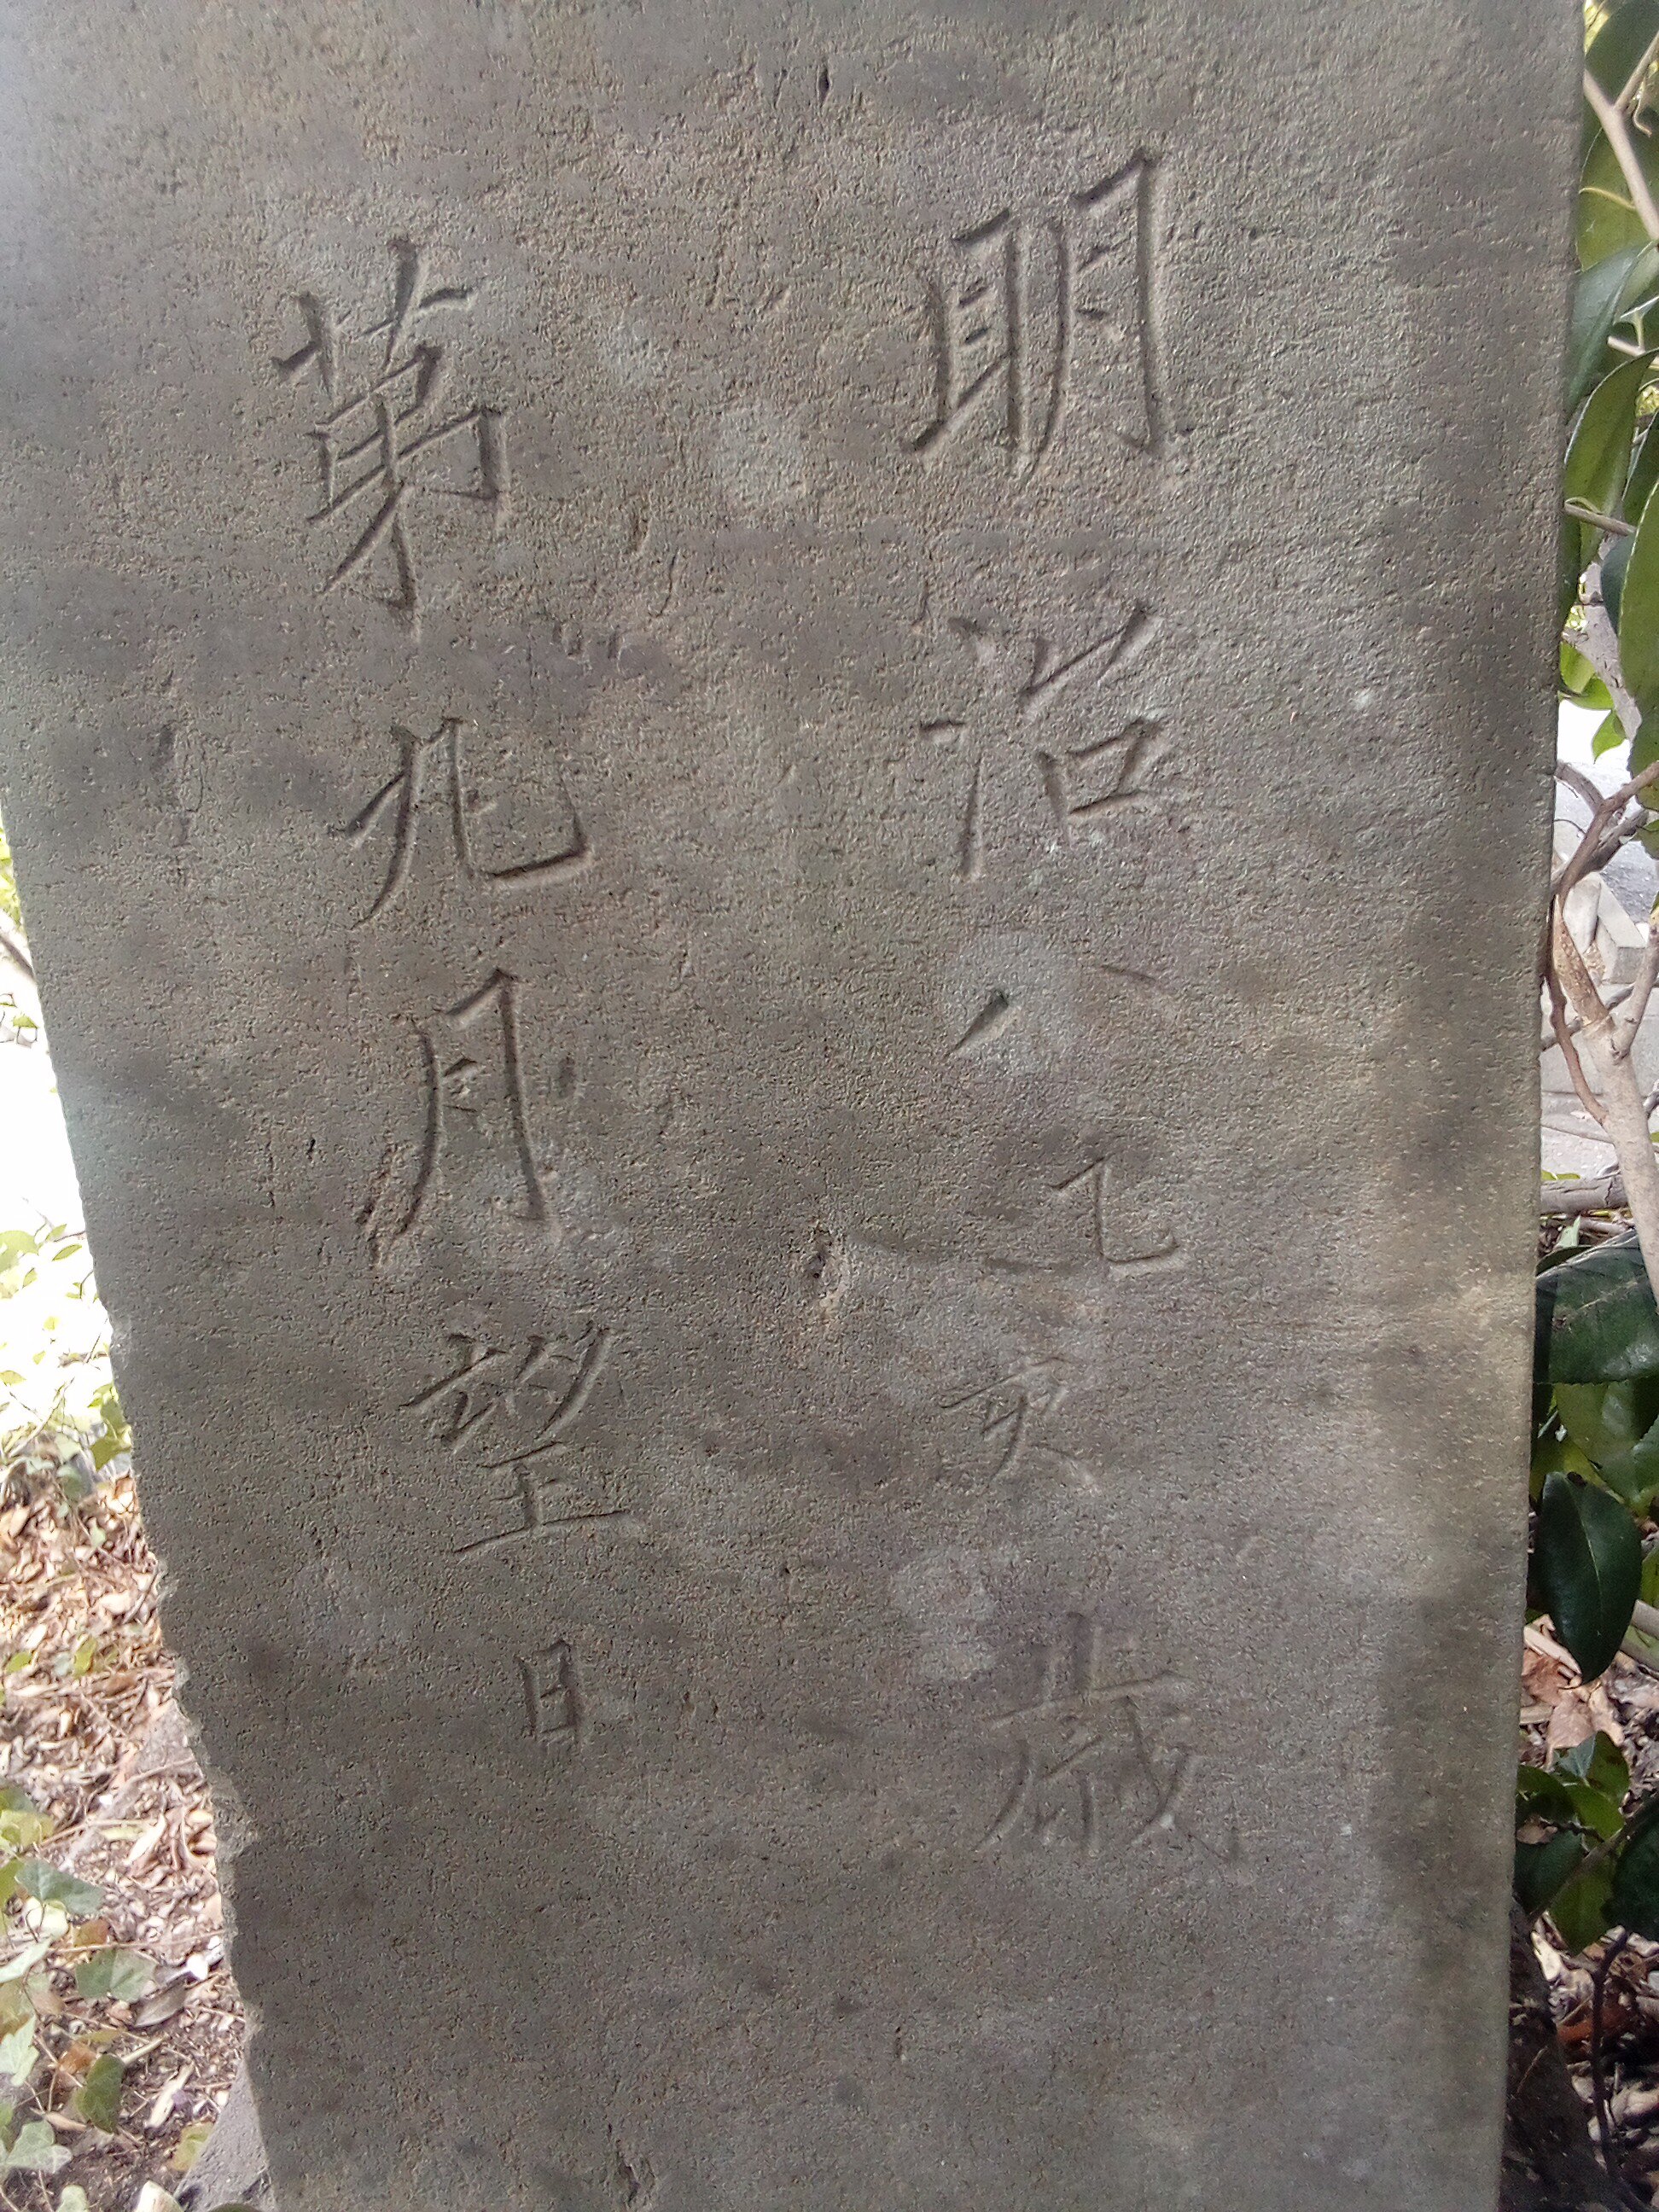 明治八乙亥歳
第九月望日